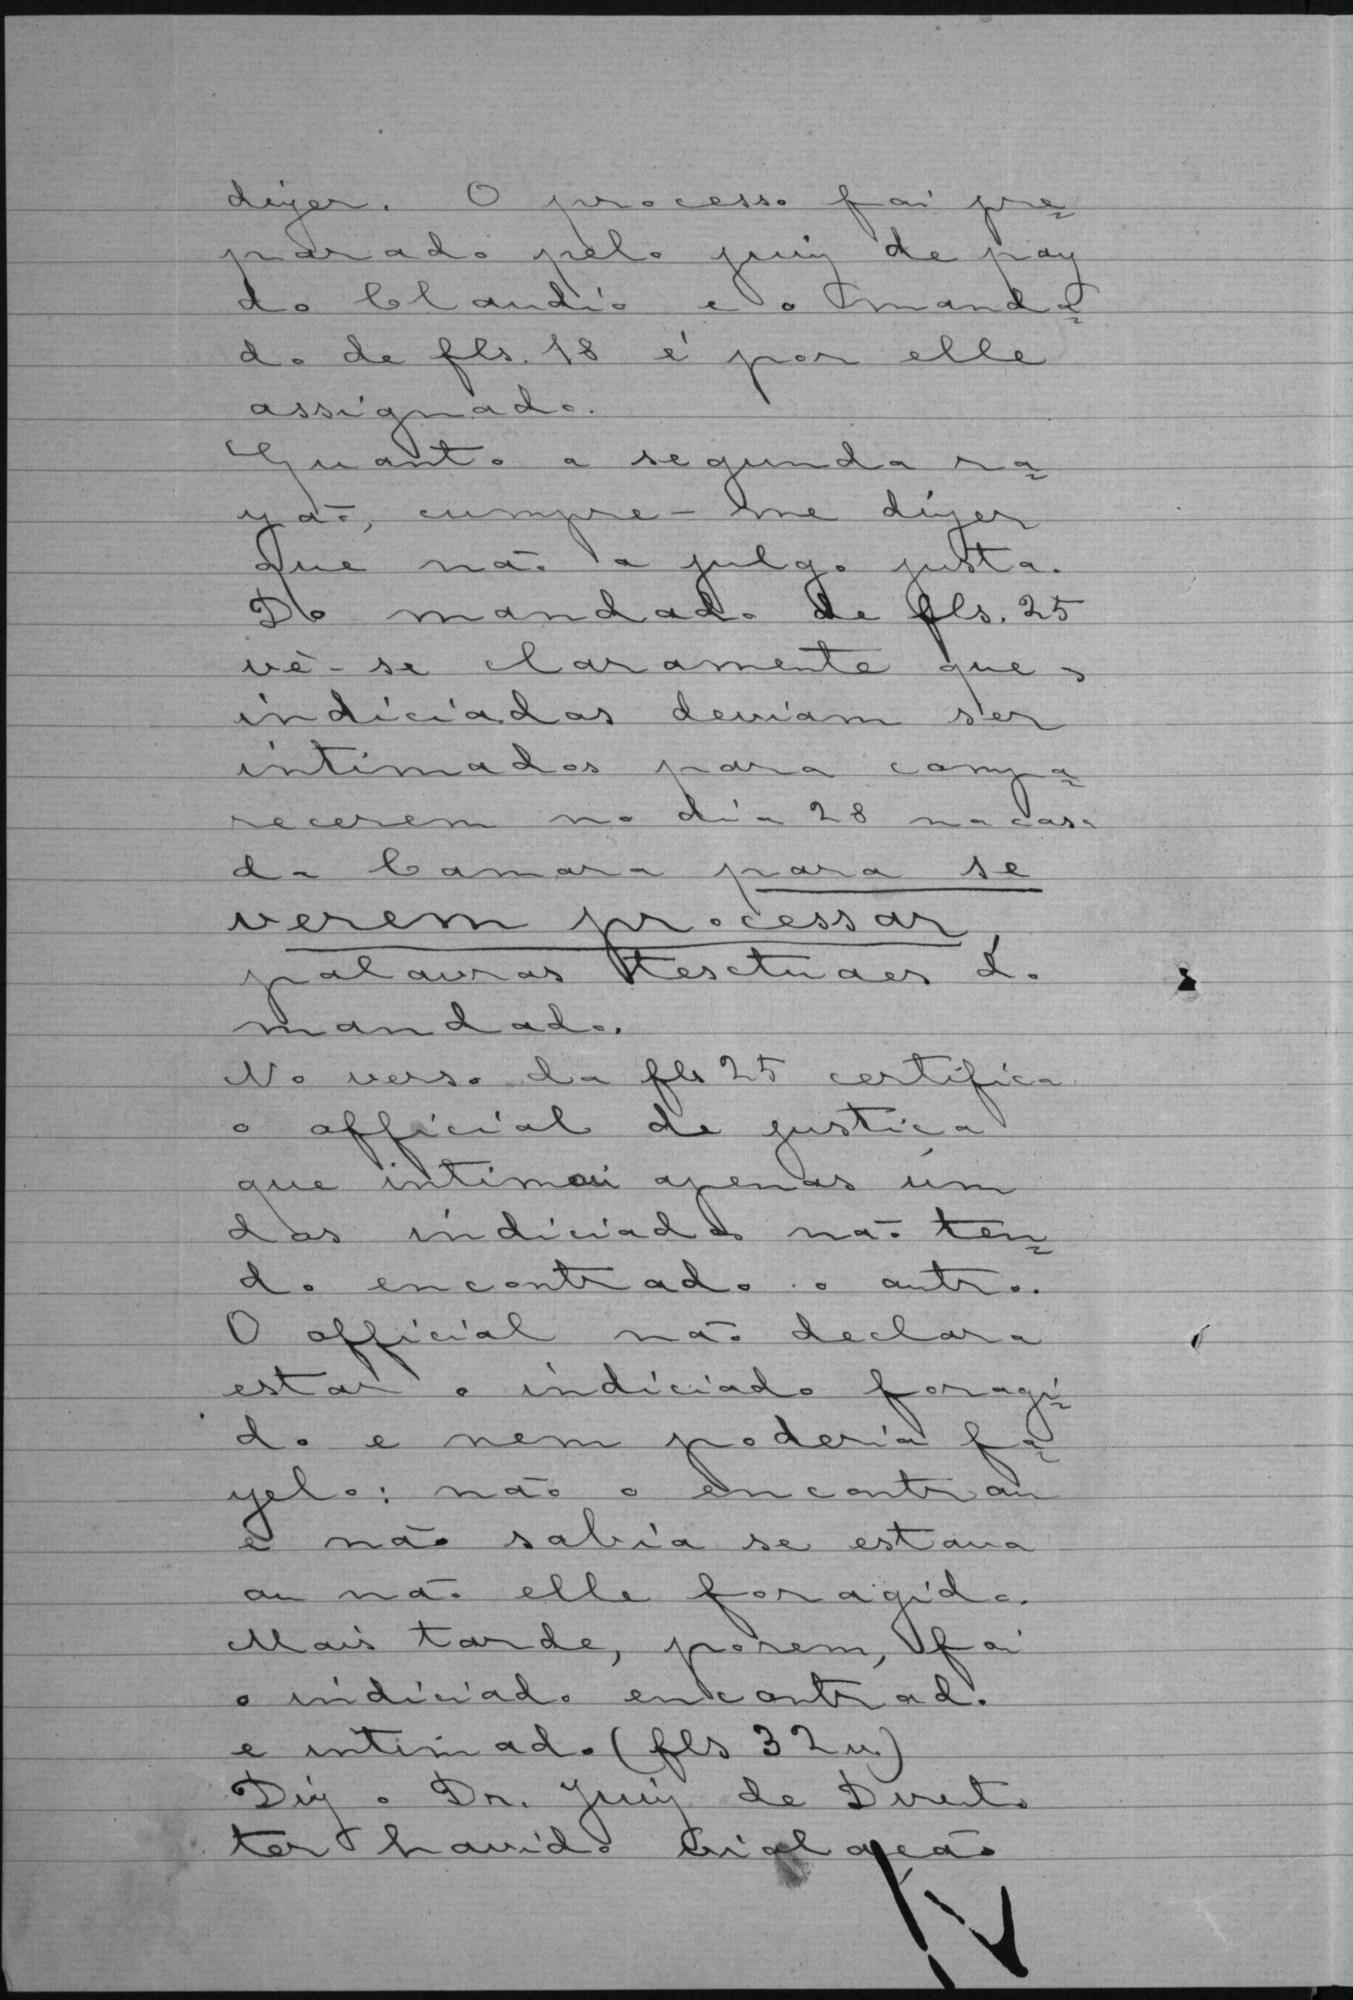 dizer. O processo foi pre=
parado pelo juiz de paz
do Claudio e o manda=
do de fls. 18 é por elle
assignado.
Quanto a segunda ra=
zão, cumpre-me dizer
que não a julgo justa.
Do mandado de fls. 25
vê-se claramente que os
indiciados deviam ser
intimados para compa=
recerem no dia 28 na casa
da Camara para se
verem processar,
palavras textuaes do
mandado.
No verso da fls 25 certifica
o official de justiça
que intimou apenas um
dos indiciados não ten=
do encontrado o outro.
O official não declara
estar o indiciado foragi=
do e nem poderia fa=
zelo: não o encontrou
e não sabia se estava
ou não elle foragido.
Mais tarde, porem, foi
o indiciado encontrado
e intimado (fls 32 v.)
Diz o Dr. Juiz de Direito
ter havido violação